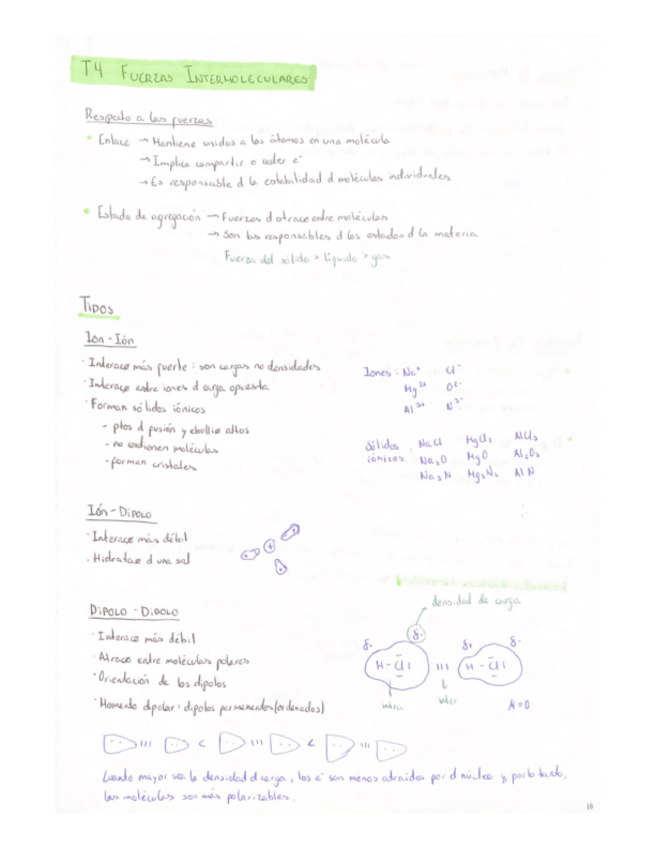 T4 FUERZAS INTERMOLECULARES
Respecto a las fuerzas
• Enlace → Mantiene unidos a los átomos en una molécula
→ Implica compartir o ceder e⁻
→ Es responsable d la estabilidad d moléculas individuales
• Estado de agregación → Fuerzas d atracc entre moléculas
→ Son las responsables d los estados d la materia
Fuerza del sólido > líquido > gas
TIPOS
Ion - Ión
· Interacc más fuerte : son cargas no densidades
· Interacc entre iones d carga opuesta
· Forman sólidos iónicos
- ptos d fusión y ebullic altos
- no contienen moléculas
- forman cristales
Iones : Na⁺ Cl⁻
Mg²⁺ O²⁻
Al³⁺ N³⁻
Sólidos iónicos : NaCl MgCl₂ AlCl₃
Na₂O MgO Al₂O₃
Na₃N Mg₃N₂ AlN
IÓN - DIPOLO
· Interacc más débil
· Hidratac d una sal
DIPOLO - DIPOLO
· Interacc más débil
· Atracc entre moléculas polares
· Orientación de los dipolos
· Momento dipolar : dipolos permanentes (ordenados)
densidad de carga
δ+ δ- δ+ δ-
H - Cl ||| H - Cl
intra inter
μ = 0
||| < ||| < |||
Cuando mayor sea la densidad d carga, los e⁻ son menos atraídos por el núcleo y, por lo tanto,
las moléculas son más polarizables.